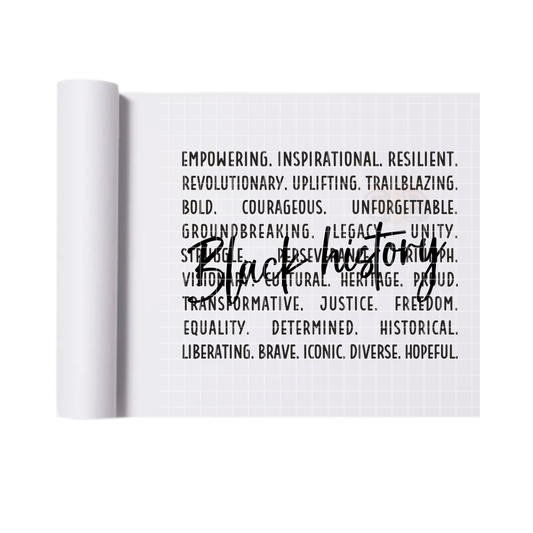 EMPOWERING. INSPIRATIONAL. RESILIENT.
REVOLUTIONARY. UPLIFTING. TRAILBLAZING.
BOLD. COURAGEOUS. UNFORGETTABLE.
GROUNDBREAKING. LEGACY. UNITY.
STRUGGLE. PERSEVERANCE. TRIUMPH.
Black history
VISIONARY. CULTURAL. HERITAGE. PROUD.
TRANSFORMATIVE. JUSTICE. FREEDOM.
EQUALITY. DETERMINED. HISTORICAL.
LIBERATING. BRAVE. ICONIC. DIVERSE. HOPEFUL.